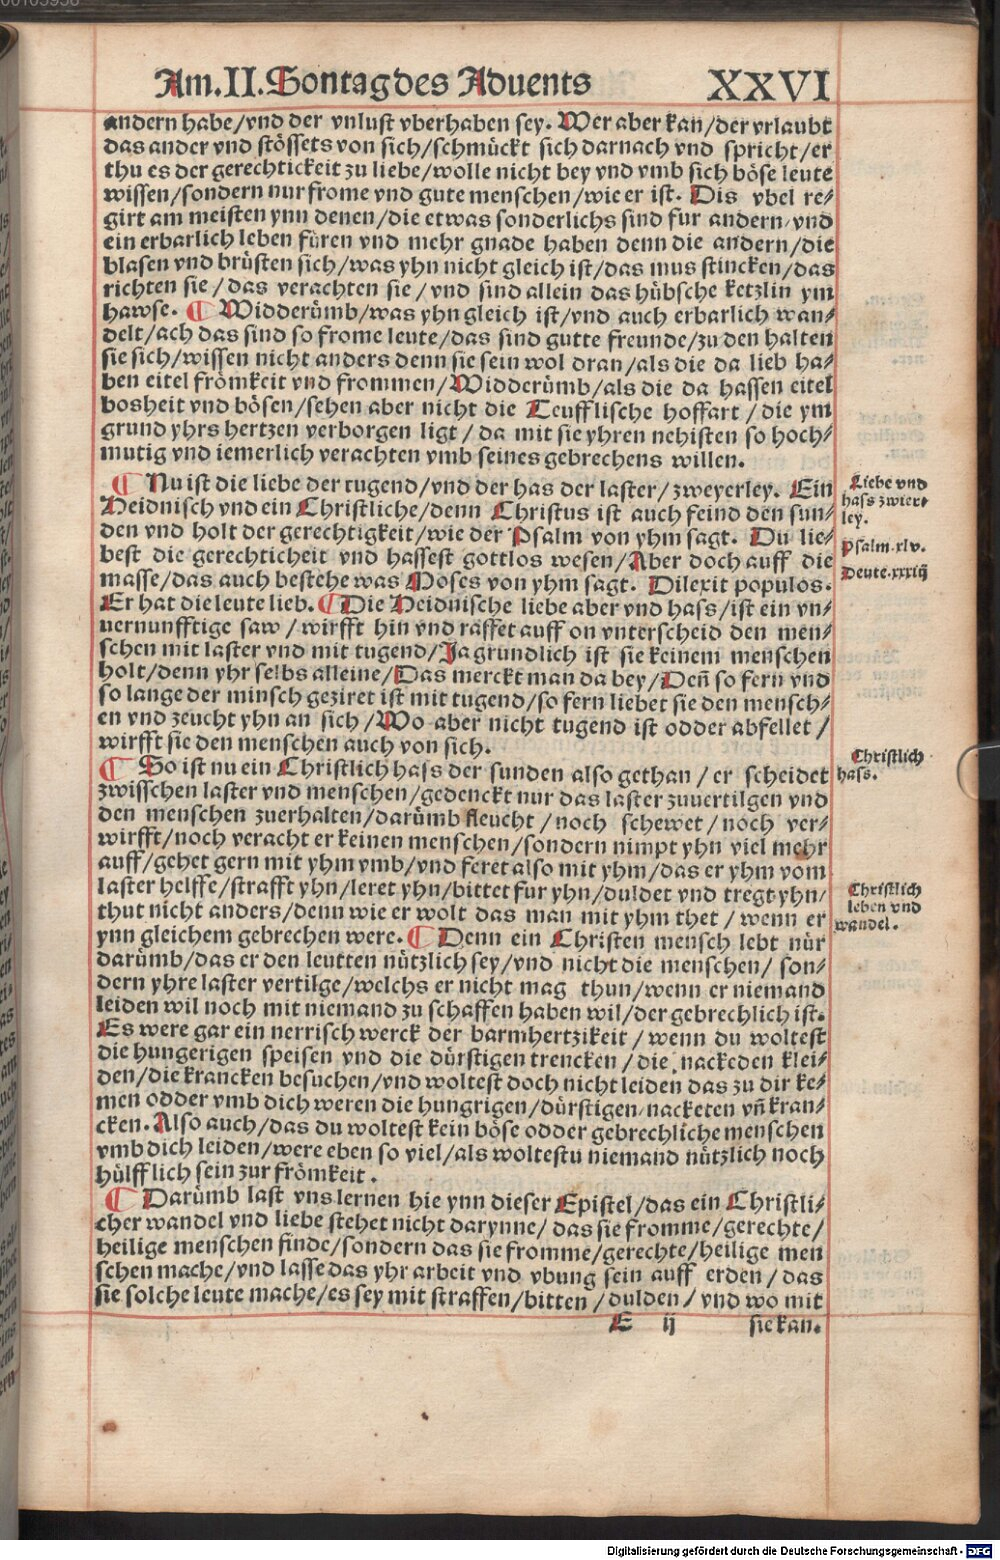 Am.II.Sontag des Aduents XXVI
andern habe/vnd der vnlust vberhaben sey. Wer aber kan/der vrlaubt
das ander vnd stössets von sich/schmückt sich darnach vnd spricht/er
thu es der gerechtickeit zu liebe/wolle nicht bey vnd vmb sich böse leute
wissen/sondern nur frome vnd gute menschen/wie er ist. Dis vbel re⸗
girt am meisten ynn denen/die etwas sonderlichs sind fur andern/vnd
ein erbarlich leben füren vnd mehr gnade haben denn die andern/die
blasen vnd brüsten sich/was yhn nicht gleich ist/das mus stincken/das
richten sie/das verachten sie/vnd sind allein das hübsche ketzlin ym
hawse. ¶ Widderümb/was yhn gleich ist/vnd auch erbarlich wan⸗
delt/ach das sind so frome leute/das sind gutte freunde/zu den halten
sie sich/wissen nicht anders denn sie sein wol dran/als die da lieb ha⸗
ben eitel frömkeit vnd frommen/Widderümb/als die da hassen eitel
bosheit vnd bösen/sehen aber nicht die Teufflische hoffart/die ym
grund yhrs hertzen verborgen ligt/da mit sie yhren nehisten so hoch⸗
mutig vnd iemerlich verachten vmb seines gebrechens willen.
¶ Nu ist die liebe der tugend/vnd der has der laster/zweyerley. Ein
Heidnisch vnd ein Christliche/denn Christus ist auch feind den sun⸗
den vnd holt der gerechtigkeit/wie der Psalm von yhm sagt. Du lie⸗
best die gerechticheit vnd hassest gottlos wesen/Aber doch auff die
masse/das auch bestehe was Moses von yhm sagt. Dilexit populos.
Er hat die leute lieb. ¶ Die Heidnische liebe aber vnd hass/ist ein vn⸗
uernunfftige saw/wirfft hin vnd raffet auff on vnterscheid den men⸗
schen mit laster vnd mit tugend/Ja grundlich ist sie keinem menschen
holt/denn yhr selbs alleine/Das merckt man da bey/Deñ so fern vnd
so lange der minsch geziret ist mit tugend/so fern liebet sie den mensch⸗
en vnd zeucht yhn an sich/Wo aber nicht tugend ist odder abfellet/
wirfft sie den menschen auch von sich.
¶ So ist nu ein Christlich hass der sunden also gethan/er scheidet
zwisschen laster vnd menschen/gedenckt nur das laster zuuertilgen vnd
den menschen zuerhalten/darümb fleucht/noch schewet/noch ver⸗
wirfft/noch veracht er keinen menschen/sondern nimpt yhn viel mehr
auff/gehet gern mit yhm vmb/vnd feret also mit yhm/das er yhm vom
laster helffe/strafft yhn/leret yhn/bittet fur yhn/duldet vnd tregt yhn/
thut nicht anders/denn wie er wolt das man mit yhm thet/wenn er
ynn gleichem gebrechen were. ¶ Denn ein Christen mensch lebt nür
darümb/das er den leutten nützlich sey/vnd nicht die menschen/son⸗
dern yhre laster vertilge/welchs er nicht mag thun/wenn er niemand
leiden wil noch mit niemand zu schaffen haben wil/der gebrechlich ist.
Es were gar ein nerrisch werck der barmhertzikeit/wenn du woltest
die hungerigen speisen vnd die dürstigen trencken/die nackeden klei⸗
den/die krancken besuchen/vnd woltest doch nicht leiden das zu dir ke⸗
men odder vmb dich weren die hungrigen/dürstigen/nacketen vñ kran⸗
cken. Also auch/das du woltest kein böse odder gebrechliche menschen
vmb dich leiden/were eben so viel/als woltestu niemand nützlich noch
hülfflich sein zur frömkeit.
¶ Darümb last vns lernen hie ynn dieser Epistel/das ein Christli⸗
cher wandel vnd liebe stehet nicht darynne/das sie fromme/gerechte/
heilige menschen finde/sondern das sie fromme/gerechte/heilige men
schen mache/vnd lasse das yhr arbeit vnd vbung sein auff erden/das
sie solche leute mache/es sey mit straffen/bitten/dulden/vnd wo mit
E ij sie kan.
Liebe vnd
hass zwier⸗
ley.
Psalm.xlv.
Deute.xxxiij
Christlich
hass.
Christlich
leben vnd
wandel.
Digitalisierung gefördert durch die Deutsche Forschungsgemeinschaft - DFG